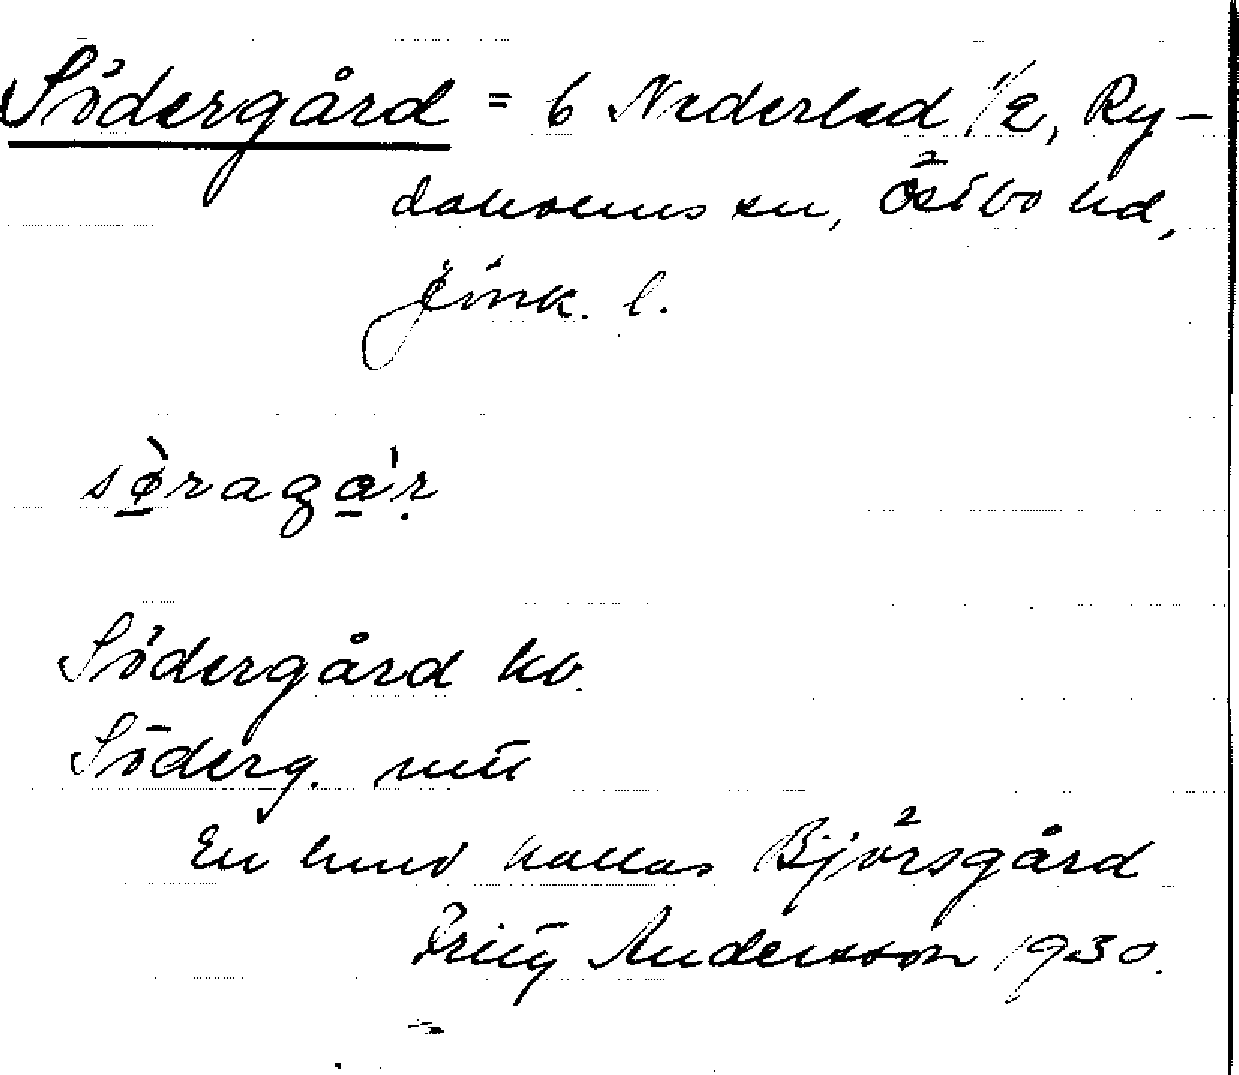 Södergård = 6 Nederled 1/2, Ry-
daholms sn, Östbo hd,
Jönk. l.
sø̀ragá'ṛ
Södergård kb.
Söderg. mtl
En hmd kallas Björsgård
Fritz Andersson 1930.